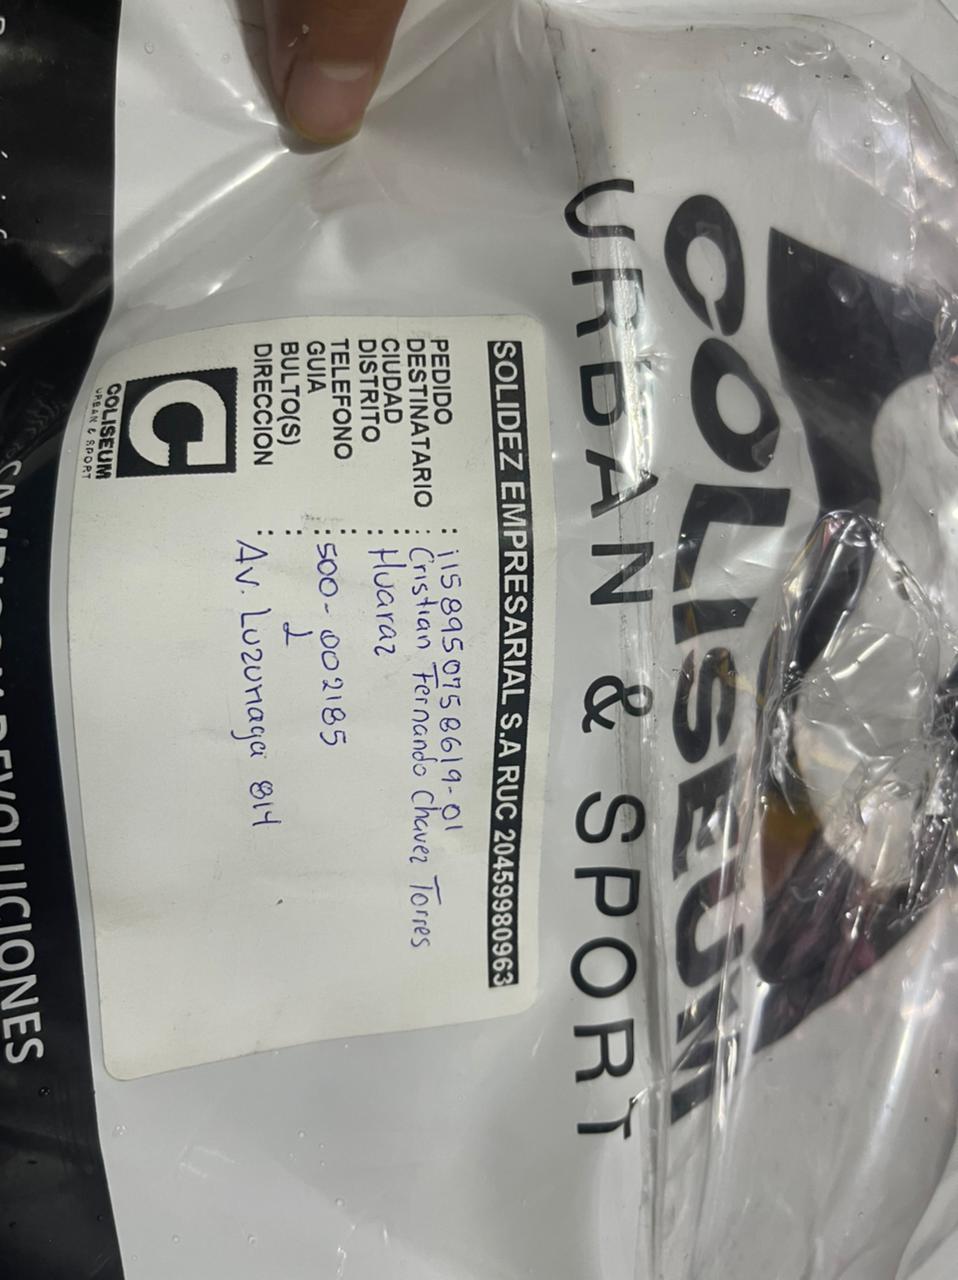 COLISEUM
URBAN & SPORT
SOLIDEZ EMPRESARIAL S.A RUC 20459980963
PEDIDO : 1158950758619-01
DESTINATARIO : Cristian Fernando Chavez Torres
CIUDAD :
DISTRITO : Huaraz
TELEFONO :
GUIA : 500-002185
BULTO(S) : 1
DIRECCION : Av. Luzuriaga 814
COLISEUM
URBAN & SPORT
CAMBIOS Y DEVOLUCIONES